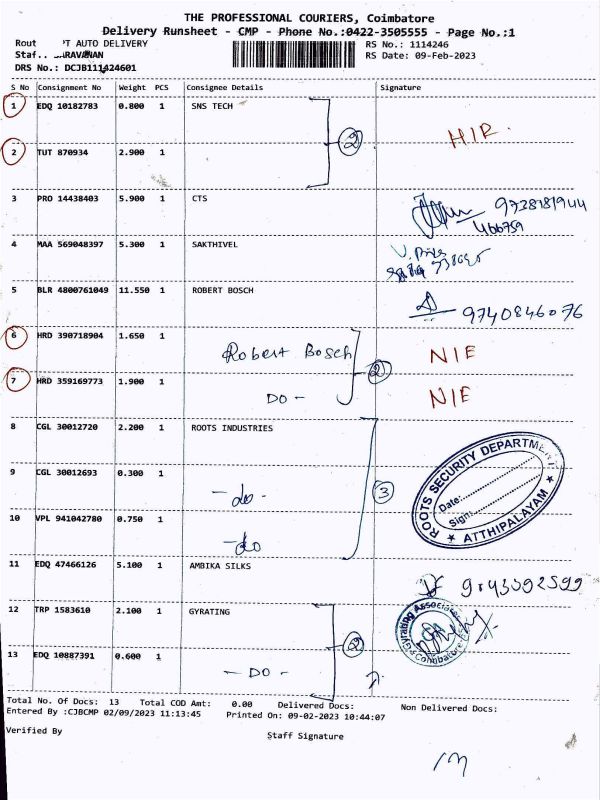 THE PROFESSIONAL COURIERS, Coimbatore
Delivery Runsheet - CMP - Phone No.:0422-3505555 - Page No.:1
Rout T AUTO DELIVERY RS No.: 1114246
RS Date: 09-Feb-2023
DRS No.: DCJB111424601
S No Consignment No Weight PCS Consignee Details Signature
1 EDQ 10182783 0.800 1 SNS TECH
2 TUT 870934 2.900 1
2 H.I.R.
3 PRO 14438403 5.900 1 CTS 9738181944
466759
4 MAA 569048397 5.300 1 SAKTHIVEL
5 BLR 4800761049 11.550 1 ROBERT BOSCH 9740846076
6 HRD 390718904 1.650 1 Robert Bosch NIE
7 HRD 359169773 1.900 1 DO - 2 NIE
8 CGL 30012720 2.200 1 ROOTS INDUSTRIES
9 CGL 30012693 0.300 1 - do - 3
10 VPL 941042780 0.750 1 - do
ROOTS SECURITY DEPARTMENT
Date:
Sign:
ATTHIPALAYAM
11 EDQ 47466126 5.100 1 AMBIKA SILKS
12 TRP 1583610 2.100 1 GYRATING 2
Gyrating Associates
Coimbatore
13 EDQ 10887391 0.600 1 - DO -
Total No. Of Docs: 13 Total COD Amt: 0.00 Delivered Docs: Non Delivered Docs:
Entered By :CJBCMP 02/09/2023 11:13:45 Printed On: 09-02-2023 10:44:07
Verified By Staff Signature